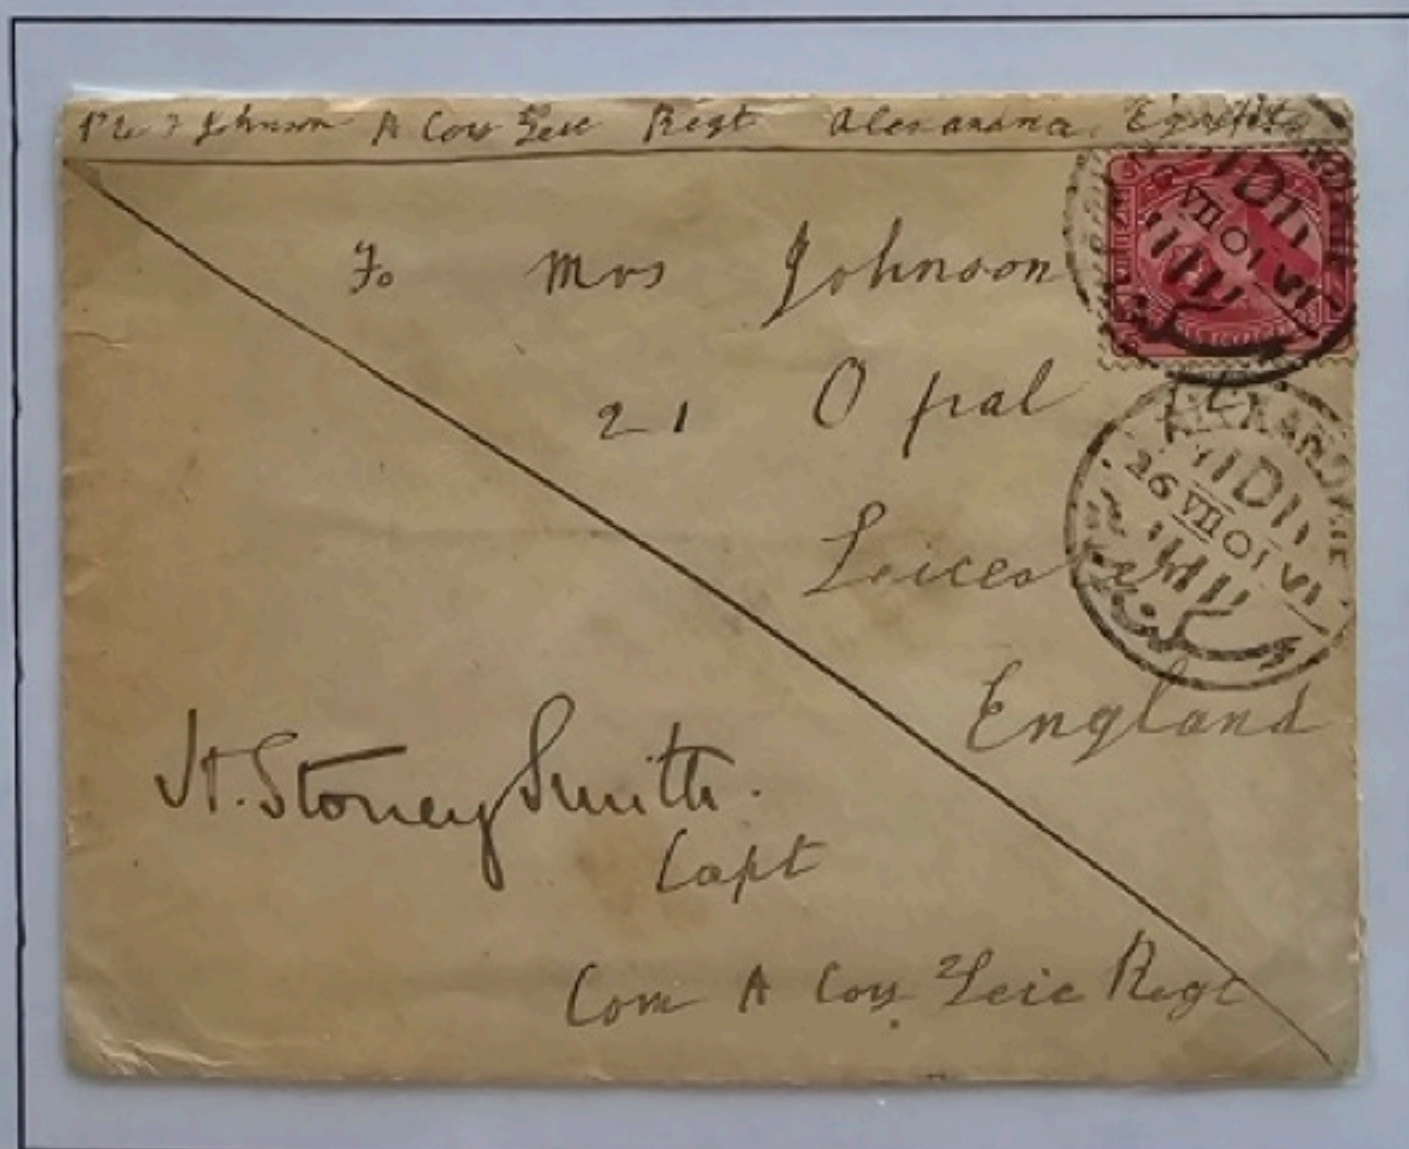 Pte F Johnson A Coy Leic Regt Alexandria
To Mrs Johnson
21 Opal
Leices
England
ALEXANDRIE
26 VII 01 VI
VII 01 VI
H. Stoney Smith.
Capt
Com A Coy Leic Regt